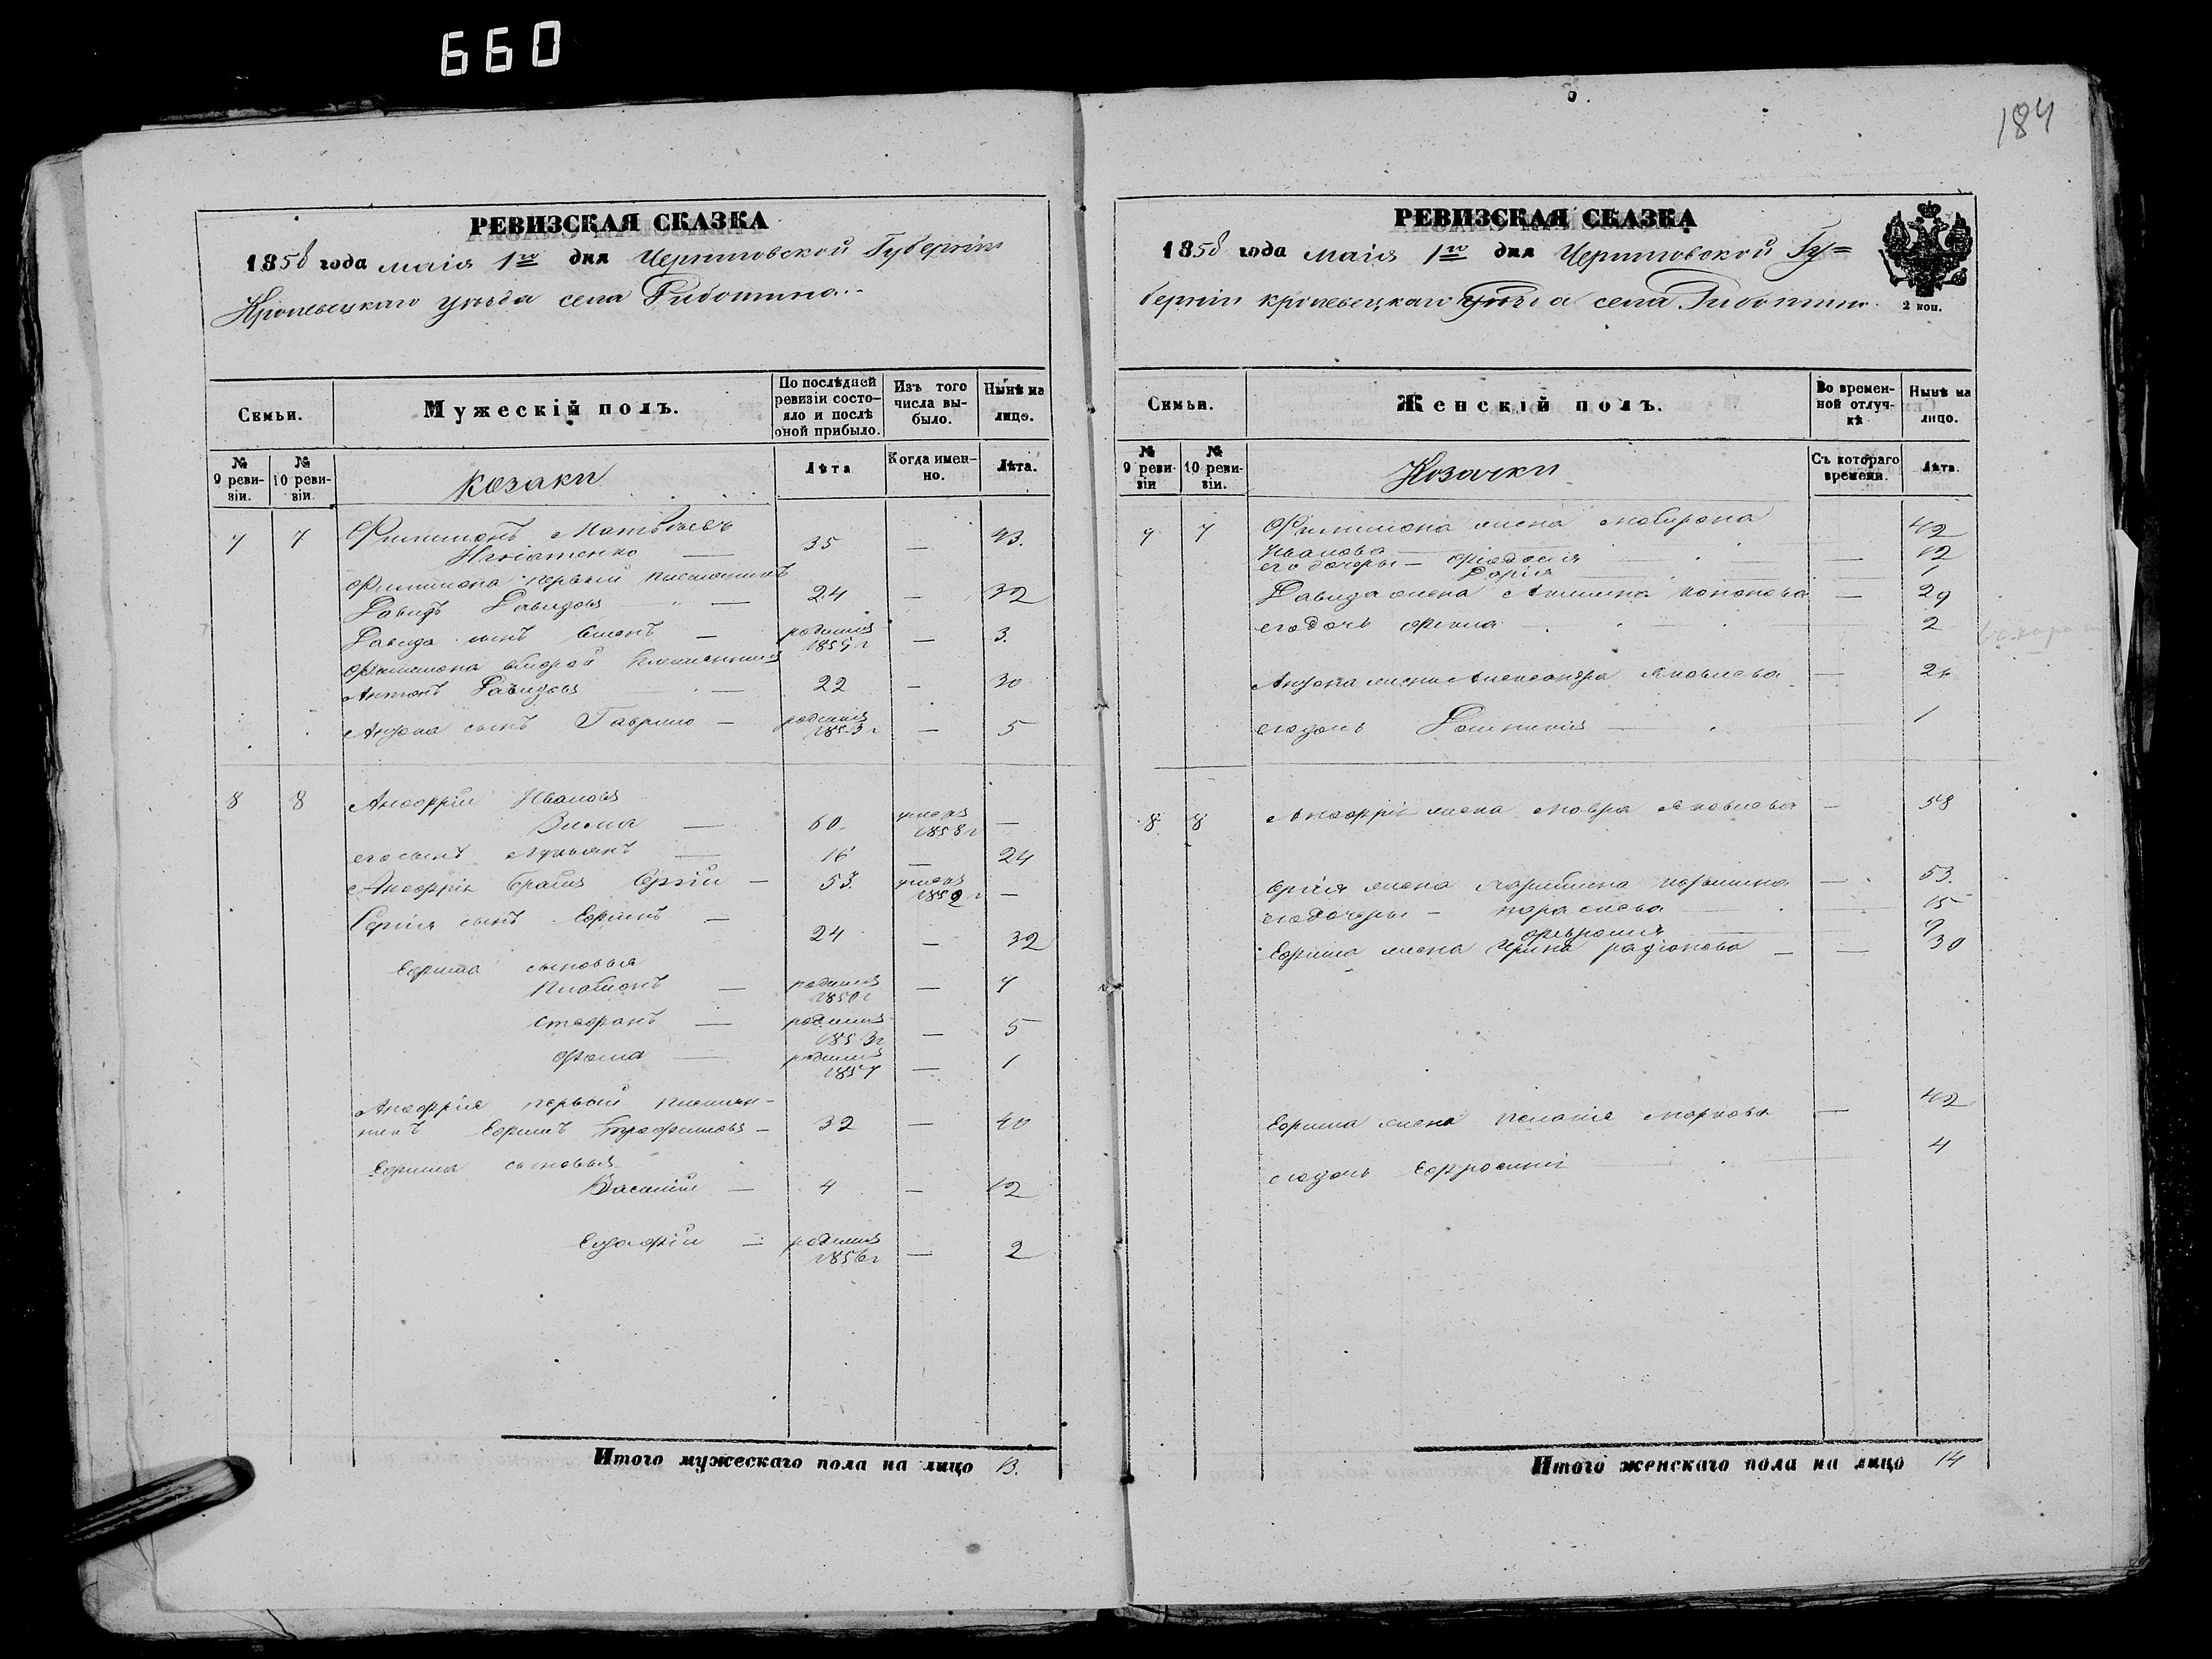 660
184
РЕВИЗСКАЯ СКАЗКА
1858 года маія 1го дня Черниговской Губерніи
Кролевецкаго уѣзда села
Семьи.
Мужескій полъ.
По послѣдней ревизіи состояло и послѣ оной прибыло.
Изъ того числа выбыло.
Нынѣ на лицо.
№ 9 ревизіи.
№ 10 ревизіи.
козаки
Лѣта
Когда именно.
Лѣта.
7 7 Филимонъ Матвѣевъ
Игнатенко — 35 — 43.
Филимона первый племянникъ
Давидъ Давидовъ — 24 — 32
Давида сынъ Семенъ — родился 185 г — 3.
Филимона второй племянникъ
Антонъ Давидовъ — 22 — 30
Антона сынъ Гаврило — родился 1853 г — 5
8 8 Анофрій Ивановъ
60. умеръ 1858 г —
его сынъ Лукьянъ — 16 — 24
Анофрія братъ Сергій — 53. умеръ 1852 г —
Сергія сынъ Ефимъ —
24 — 32
Ефима сыновья
Платонъ — родился 1850 г — 7
Стефанъ — родился 1853 г — 5
Фома — родился 1857 — 1
Анофрія первый племян-
никъ Ефимъ Трофимовъ — 32 — 40
Ефима сыновья
Василій — 4 — 12
родился 1856 г — 2
Итого мужескаго пола на лицо 13.
РЕВИЗСКАЯ СКАЗКА
1858 года маія 1го дня Черниговской Гу=
берніи кролевецкаго уѣзда села
2 коп.
Семьи.
Женскій полъ.
Во временной отлучкѣ
Нынѣ на лицо.
№ 9 ревизіи
№ 10 ревизіи.
Козачки
Съ котораго времени.
Лѣта.
7 Филимона жена 42
Иванова
его дочери — Феодосія — 12
Дарія — 1
Давида жена Кононова — 29
его дочь — 2
Антона жена Александра Яковлева — 2
его дочь — 1
8 8 Анофрія жена Мавра Яковлева — 58
Сергія жена — 53.
его дочери — 15
9
Ефима жена Ирина Радіонова — 30
Ефима жена Пелагія Маркова — 42
его дочь Ефросинія 4
Итого женскаго пола на лицо 14